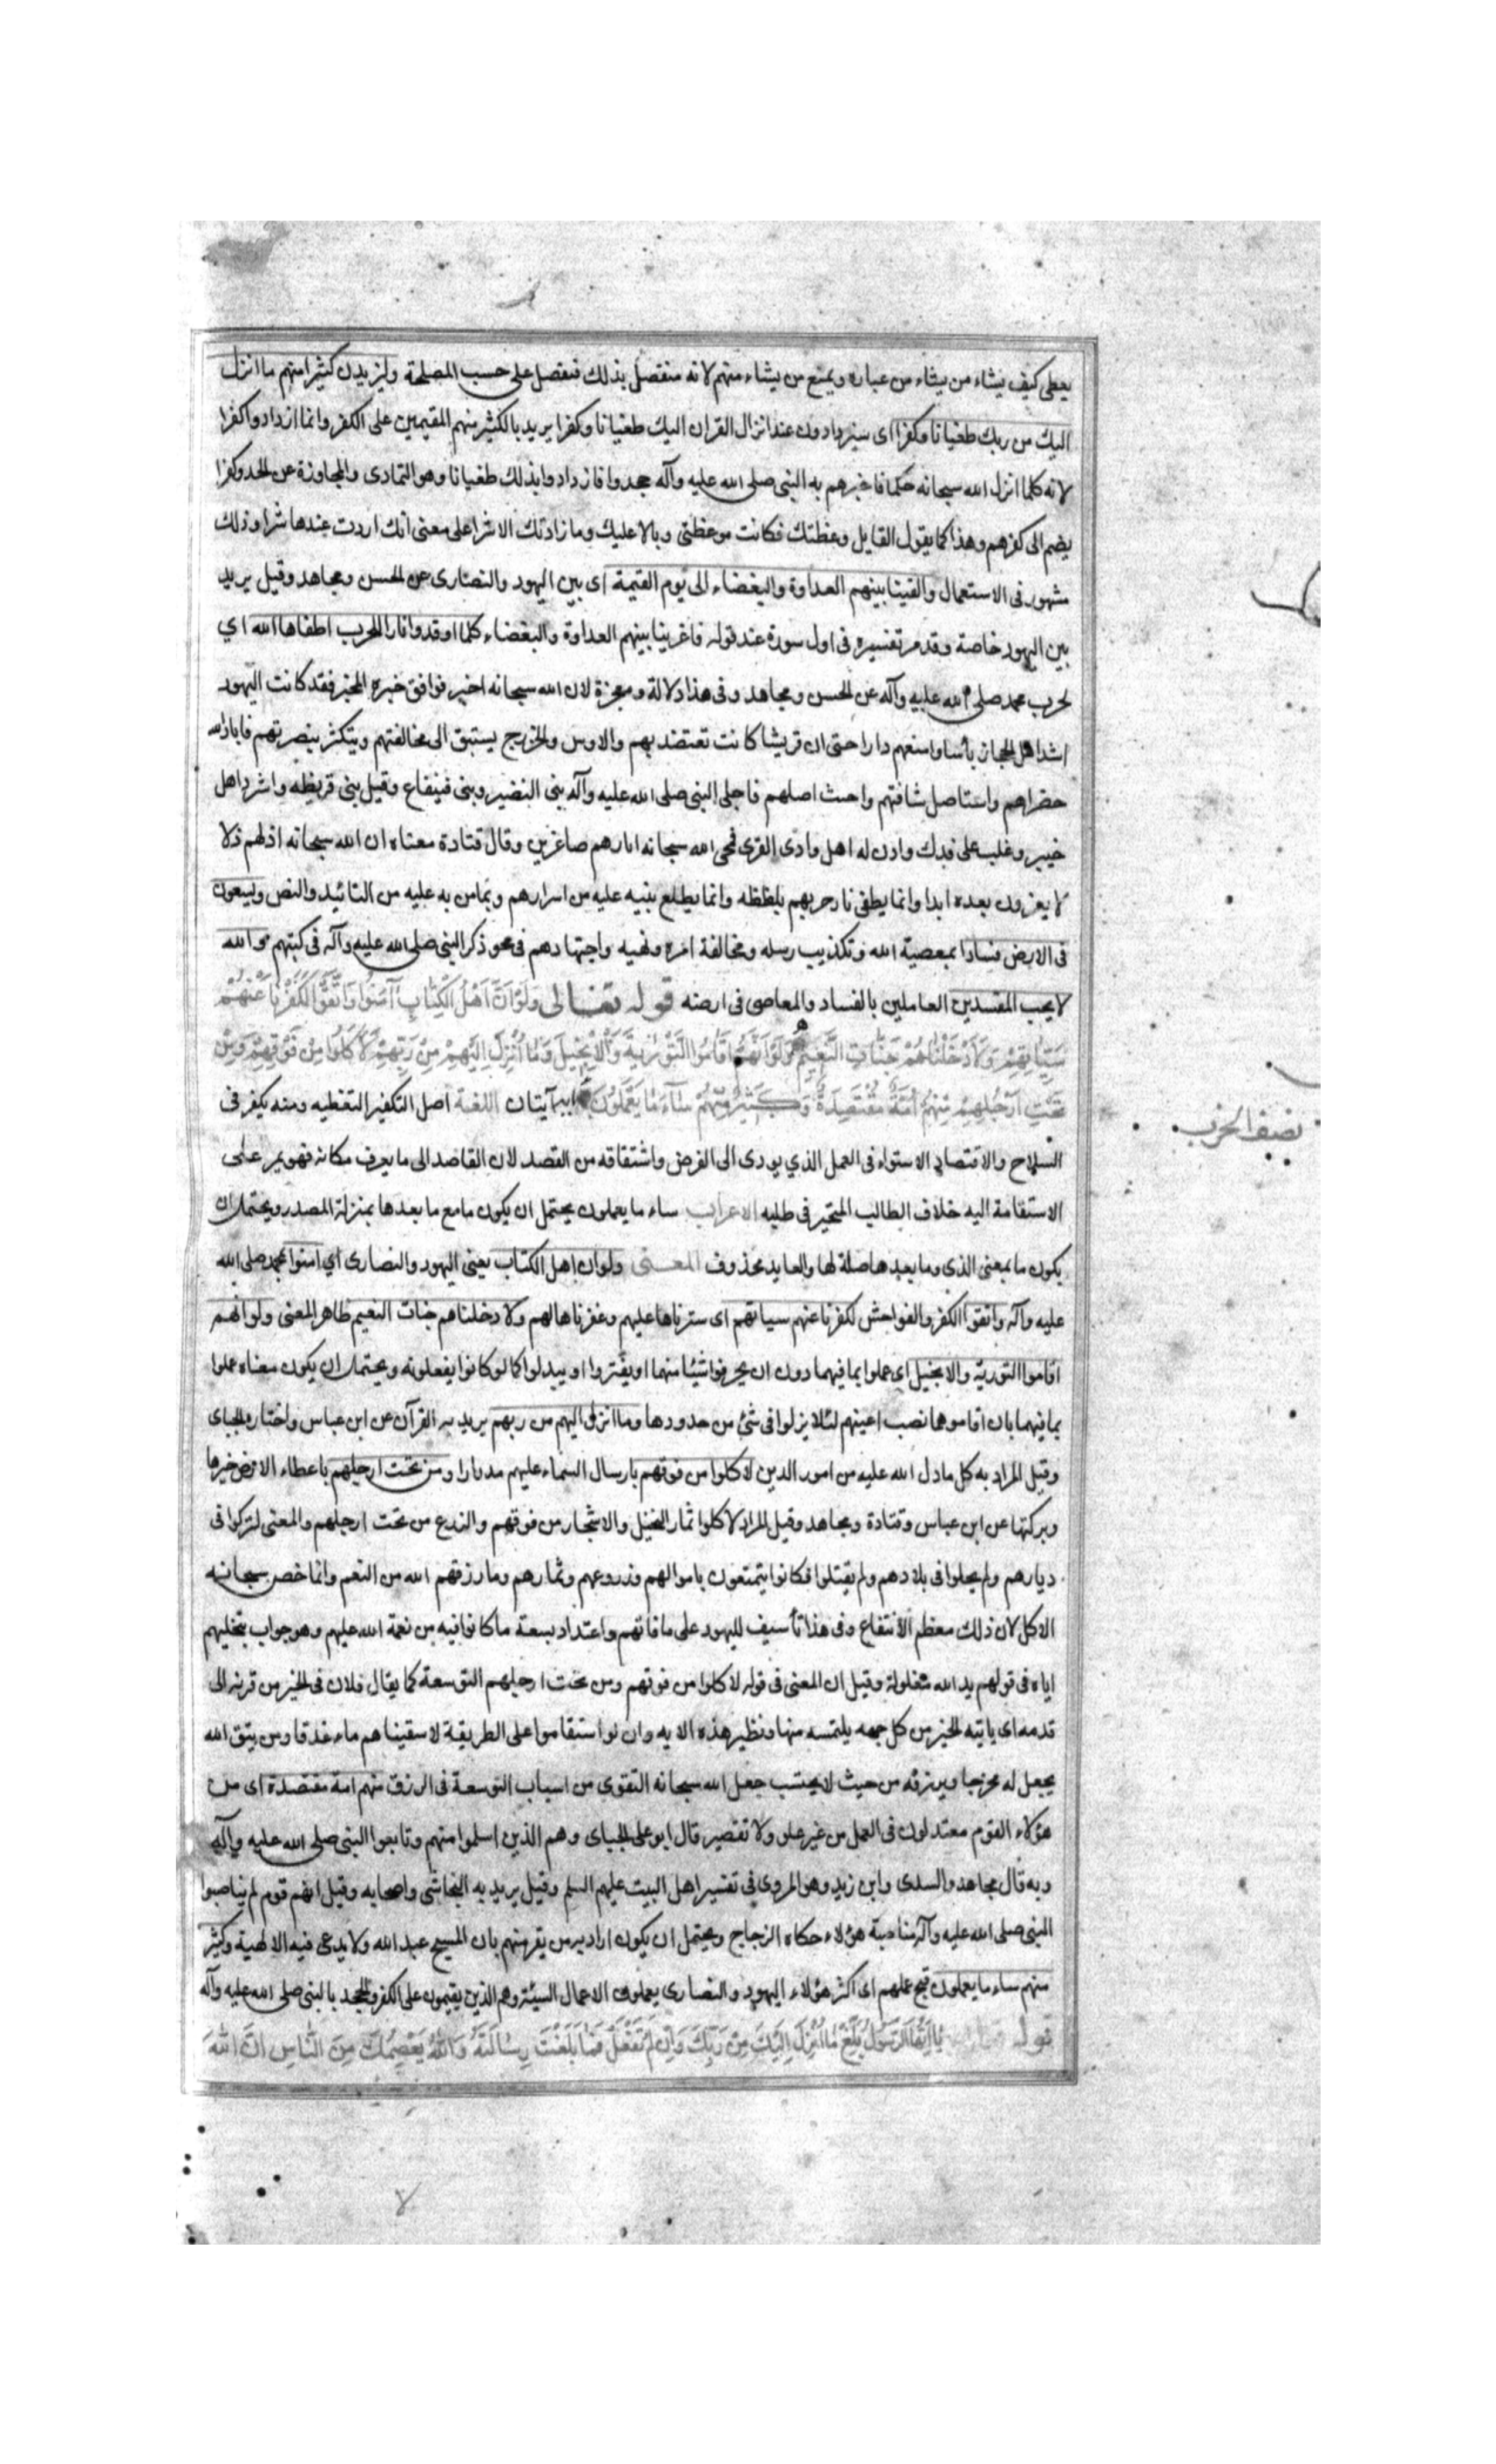 يعطى كيف يشاء من يشاء من عباده ويمنع من يشاء منهم لانه متفضل بذلك فيفعل على حسب المصلحة وليزيدن كثيرا منهم ما انزل
اليك من ربك طغيانا وكفرا اى سيزدادون عند انزال القران اليك طغيانا وكفرا يريد بالكثير منهم المقيمين على الكفر وانما ازدادوا كفرا
لانه كلما انزل الله سبحانه حكما فاخبرهم به النبى صلى الله عليه وآله جحدوا فازدادوا بذلك طغيانا وهو التمادى والمجاوزة عن الحد وكفرا
يضم الى كفرهم وهذا كما يقول القايل وعظتك فكانت موعظتى وبالا عليك وما زادتك الا شرا على معنى انك ازددت عندها شرا وذلك
مشهور فى الاستعمال والقينا بينهم العداوة والبغضاء الى يوم القيمة اى بين اليهود والنصارى عن الحسن ومجاهد وقيل يريد
بين اليهود خاصة وقد مر تفسيره فى اول سورة عند قوله فاغرينا بينهم العداوة والبغضاء كلما اوقدوا نارا للحرب اطفاها الله اي
لحرب محمد صلى الله عليه وآله عن الحسن ومجاهد وفى هذا دلالة ومعجزة لان الله سبحانه اخبر فوافق خبره المخبر فقد كانت اليهود
اشد اهل الحجاز بأسا وامنعهم دارا حتى ان قريشا كانت تعتضد بهم والاوس والخزرج يستبق الى مخالفتهم ويتكثر بنصرتهم فاباد الله
خضراهم واستاصل شافتهم واجتث اصلهم فاجلى النبى صلى الله عليه وآله بنى النضير وبنى قينقاع وقيل بنى قريظه واشرد اهل
خيبر وغلب على فدك وادن له اهل وادى القرى فمحى الله سبحانه اثارهم صاغرين وقال قتادة معناه ان الله سبحانه اذلهم ذلا
لا يعزون بعده ابدا وانما يطفى نار حربهم بلطفه وانما يطلع نبيه عليه من اسرارهم وبما من به عليه من التائيد والنصر ويسعون
فى الارض فسادا بمعصية الله وتكذيب رسله ومخالفة امره ونهيه واجتهادهم فى محو ذكر النبى صلى الله عليه وآله فى كتبهم والله
لا يحب المفسدين العاملين بالفساد والمعاصى فى ارضه قوله تعالى وَلَوْ اَنَّ اَهْلَ الْكِتَابِ آمَنُوا وَاتَّقَوْا لَكَفَّرْنَا عَنْهُمْ
سَيِّئَاتِهِمْ وَلَاَدْخَلْنَاهُمْ جَنَّاتِ النَّعِيمِ وَلَوْ اَنَّهُمْ اَقَامُوا التَّوْرٰيةَ وَالْاِنْجِيلَ وَمَا اُنْزِلَ اِلَيْهِمْ مِنْ رَبِّهِمْ لَاَكَلُوا مِنْ فَوْقِهِمْ وَمِنْ
تَحْتِ اَرْجُلِهِمْ مِنْهُمْ اُمَّةٌ مُقْتَصِدَةٌ وَكَثِيرٌ مِنْهُمْ سَاءَ مَا يَعْمَلُونَ آيتان اللغة اصل التكفير التغطيه ومنه يكفر فى
السلاح والاقتصاد الاستواء فى العمل الذي يودى الى الغرض واشتقاقه من القصد لان القاصد الى ما يعرف مكانه فهو يمر على
الاستقامة اليه خلاف الطالب المتحير فى طلبه الاعراب ساء ما يعملون يحتمل ان يكون ما مع ما بعدها بمنزلة المصدر ويحتمل ان
يكون ما بمعنى الذى وما بعدها صلة لها والعايد محذوف المعنى ولو ان اهل الكتاب يعنى اليهود والنصارى اي امنوا بمحمد صلى الله
عليه وآله واتقوا الكفر والفواحش لكفرنا عنهم سياتهم اى سترناها عليهم وغفرناها لهم ولادخلناهم جنات النعيم ظاهر المعنى ولو انهم
اقاموا التورية والانجيل اى عملوا بما فيهما دون ان يحرفوا شيئا منهما او يغيروا او يبدلوا كما لو كانوا يفعلونه ويحتمل ان يكون معناه عملوا
بما فيهما بان اقاموهما نصب اعينهم لئلا يزلوا فى شئ من حدودها وما انزل اليهم من ربهم يريد به القرآن عن ابن عباس واختاره الجباى
وقيل المراد به كل ما دل الله عليه من امور الدين لاكلوا من فوقهم بارسال السماء عليهم مدرارا ومن تحت ارجلهم باعطاء الارض خيرها
وبركتها عن ابن عباس وقتادة ومجاهد وقيل المراد لاكلوا ثمار النخيل والاشجار من فوقهم والزرع من تحت ارجلهم والمعنى لتركوا فى
ديارهم ولم يجلوا فى بلادهم ولم يقتلوا فكانوا يتمتعون باموالهم وزروعهم وثمارهم وما رزقهم الله من النعم وانما خص سبحانه
الاكل لان ذلك معظم الانتفاع وفى هذا تأسيف لليهود على ما فاتهم واعتداد بسعة ما كانوا فيه من نعمة الله عليهم وهو جواب بتخليهم
اياه فى قولهم يد الله مغلولة وقيل ان المعنى فى قوله لاكلوا من فوقهم ومن تحت ارجلهم التوسعة كما يقال فلان فى الخير من قرنه الى
قدمه اى ياتيه الخير من كل جهه يلتمسه منها ونظير هذه الايه وان لو استقاموا على الطريقة لاسقيناهم ماء غدقا ومن يتق الله
يجعل له مخرجا ويرزقه من حيث لا يحتسب جعل الله سبحانه التقوى من اسباب التوسعة فى الرزق منهم امة مقتصدة اى من
هؤلاء القوم معتدلون فى العمل من غير غلو ولا تقصير قال ابو على الجباى وهم الذين اسلموا منهم وتابعوا النبى صلى الله عليه وآله
وبه قال مجاهد والسدى وابن زيد وهو المروي فى تفسير اهل البيت عليهم السلم وقيل يريد به النجاشى واصحابه وقيل انهم قوم لم يناصبوا
النبى صلى الله عليه وآله مناصبة هؤلاء حكاه الزجاج ويحتمل ان يكون اراد به من يقر منهم بان المسيح عبد الله ولا يدعى فيه الالهية وكثير
منهم ساء ما يعملون قبح عملهم اى اكثر هؤلاء اليهود والنصارى يعملون الاعمال السيئة وهم الذين يقيمون على الكفر والجحد بالنبى صلى الله عليه وآله
قوله يَا اَيُّهَا الرَّسُولُ بَلِّغْ مَا اُنْزِلَ اِلَيْكَ مِنْ رَبِّكَ وَاِنْ لَمْ تَفْعَلْ فَمَا بَلَّغْتَ رِسَالَتَهُ وَاللّٰهُ يَعْصِمُكَ مِنَ النَّاسِ اِنَّ اللّٰهَ
نصف الحزب